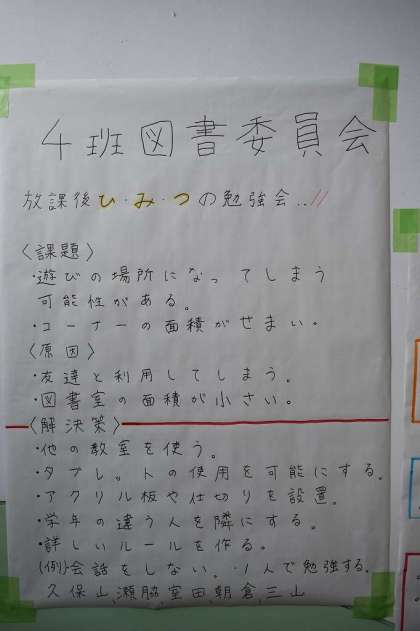 4班図書委員会
放課後ひ・み・つの勉強会..!!
〈課題〉
・遊びの場所になってしまう
可能性がある。
・コーナーの面積がせまい。
〈原因〉
・友達と利用してしまう。
・図書室の面積が小さい。
〈解決策〉
・他の教室を使う。
・タブレットの使用を可能にする。
・アクリル板や仕切りを設置。
・学年の違う人を隣にする。
・詳しいルールを作る。
(例)会話をしない。・1人で勉強する。
久保山,瀬脇,室田,朝倉,三山